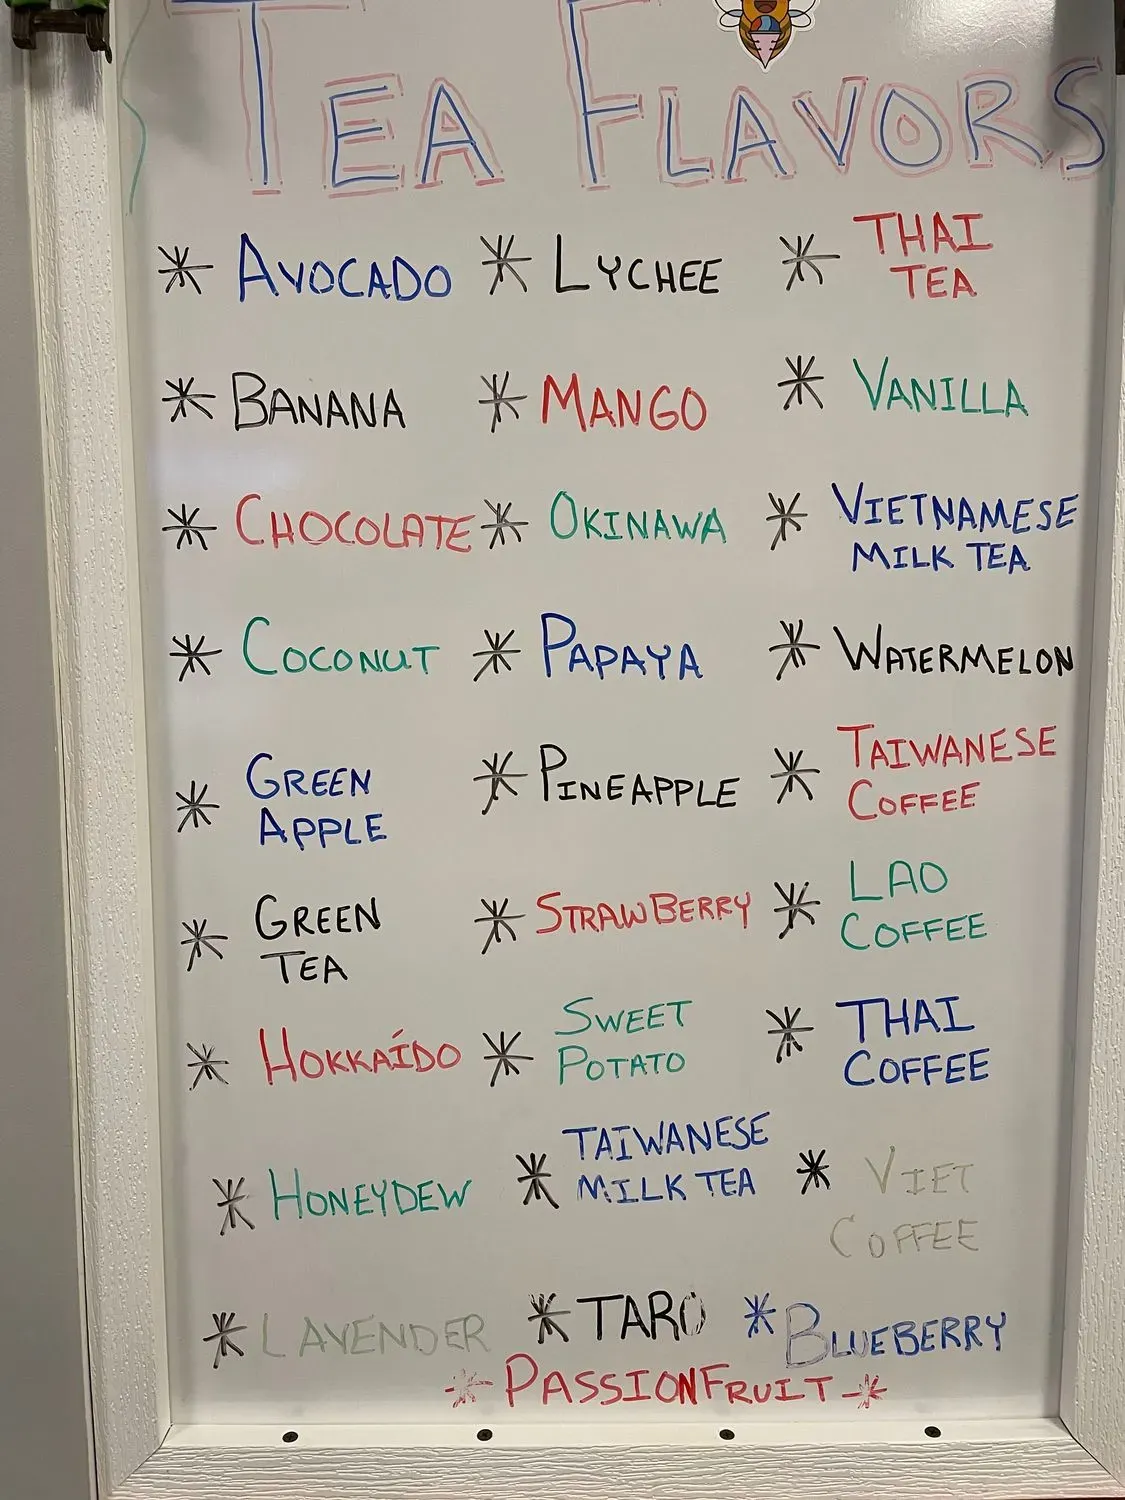 TEA FLAVORS
* AVOCADO * LYCHEE * THAI
TEA
* BANANA * MANGO * VANILLA
* CHOCOLATE * OKINAWA * VIETNAMESE
MILK TEA
* COCONUT * PAPAYA * WATERMELON
* GREEN
APPLE
* PINEAPPLE * TAIWANESE
COFFEE
* GREEN
TEA
* STRAWBERRY * LAO
COFFEE
* HOKKAÍDO * SWEET
POTATO
* THAI
COFFEE
* HONEYDEW * TAIWANESE
MILK TEA
* VIET
COFFEE
* LAVENDER * TARO * BLUEBERRY
-* PASSIONFRUIT -*